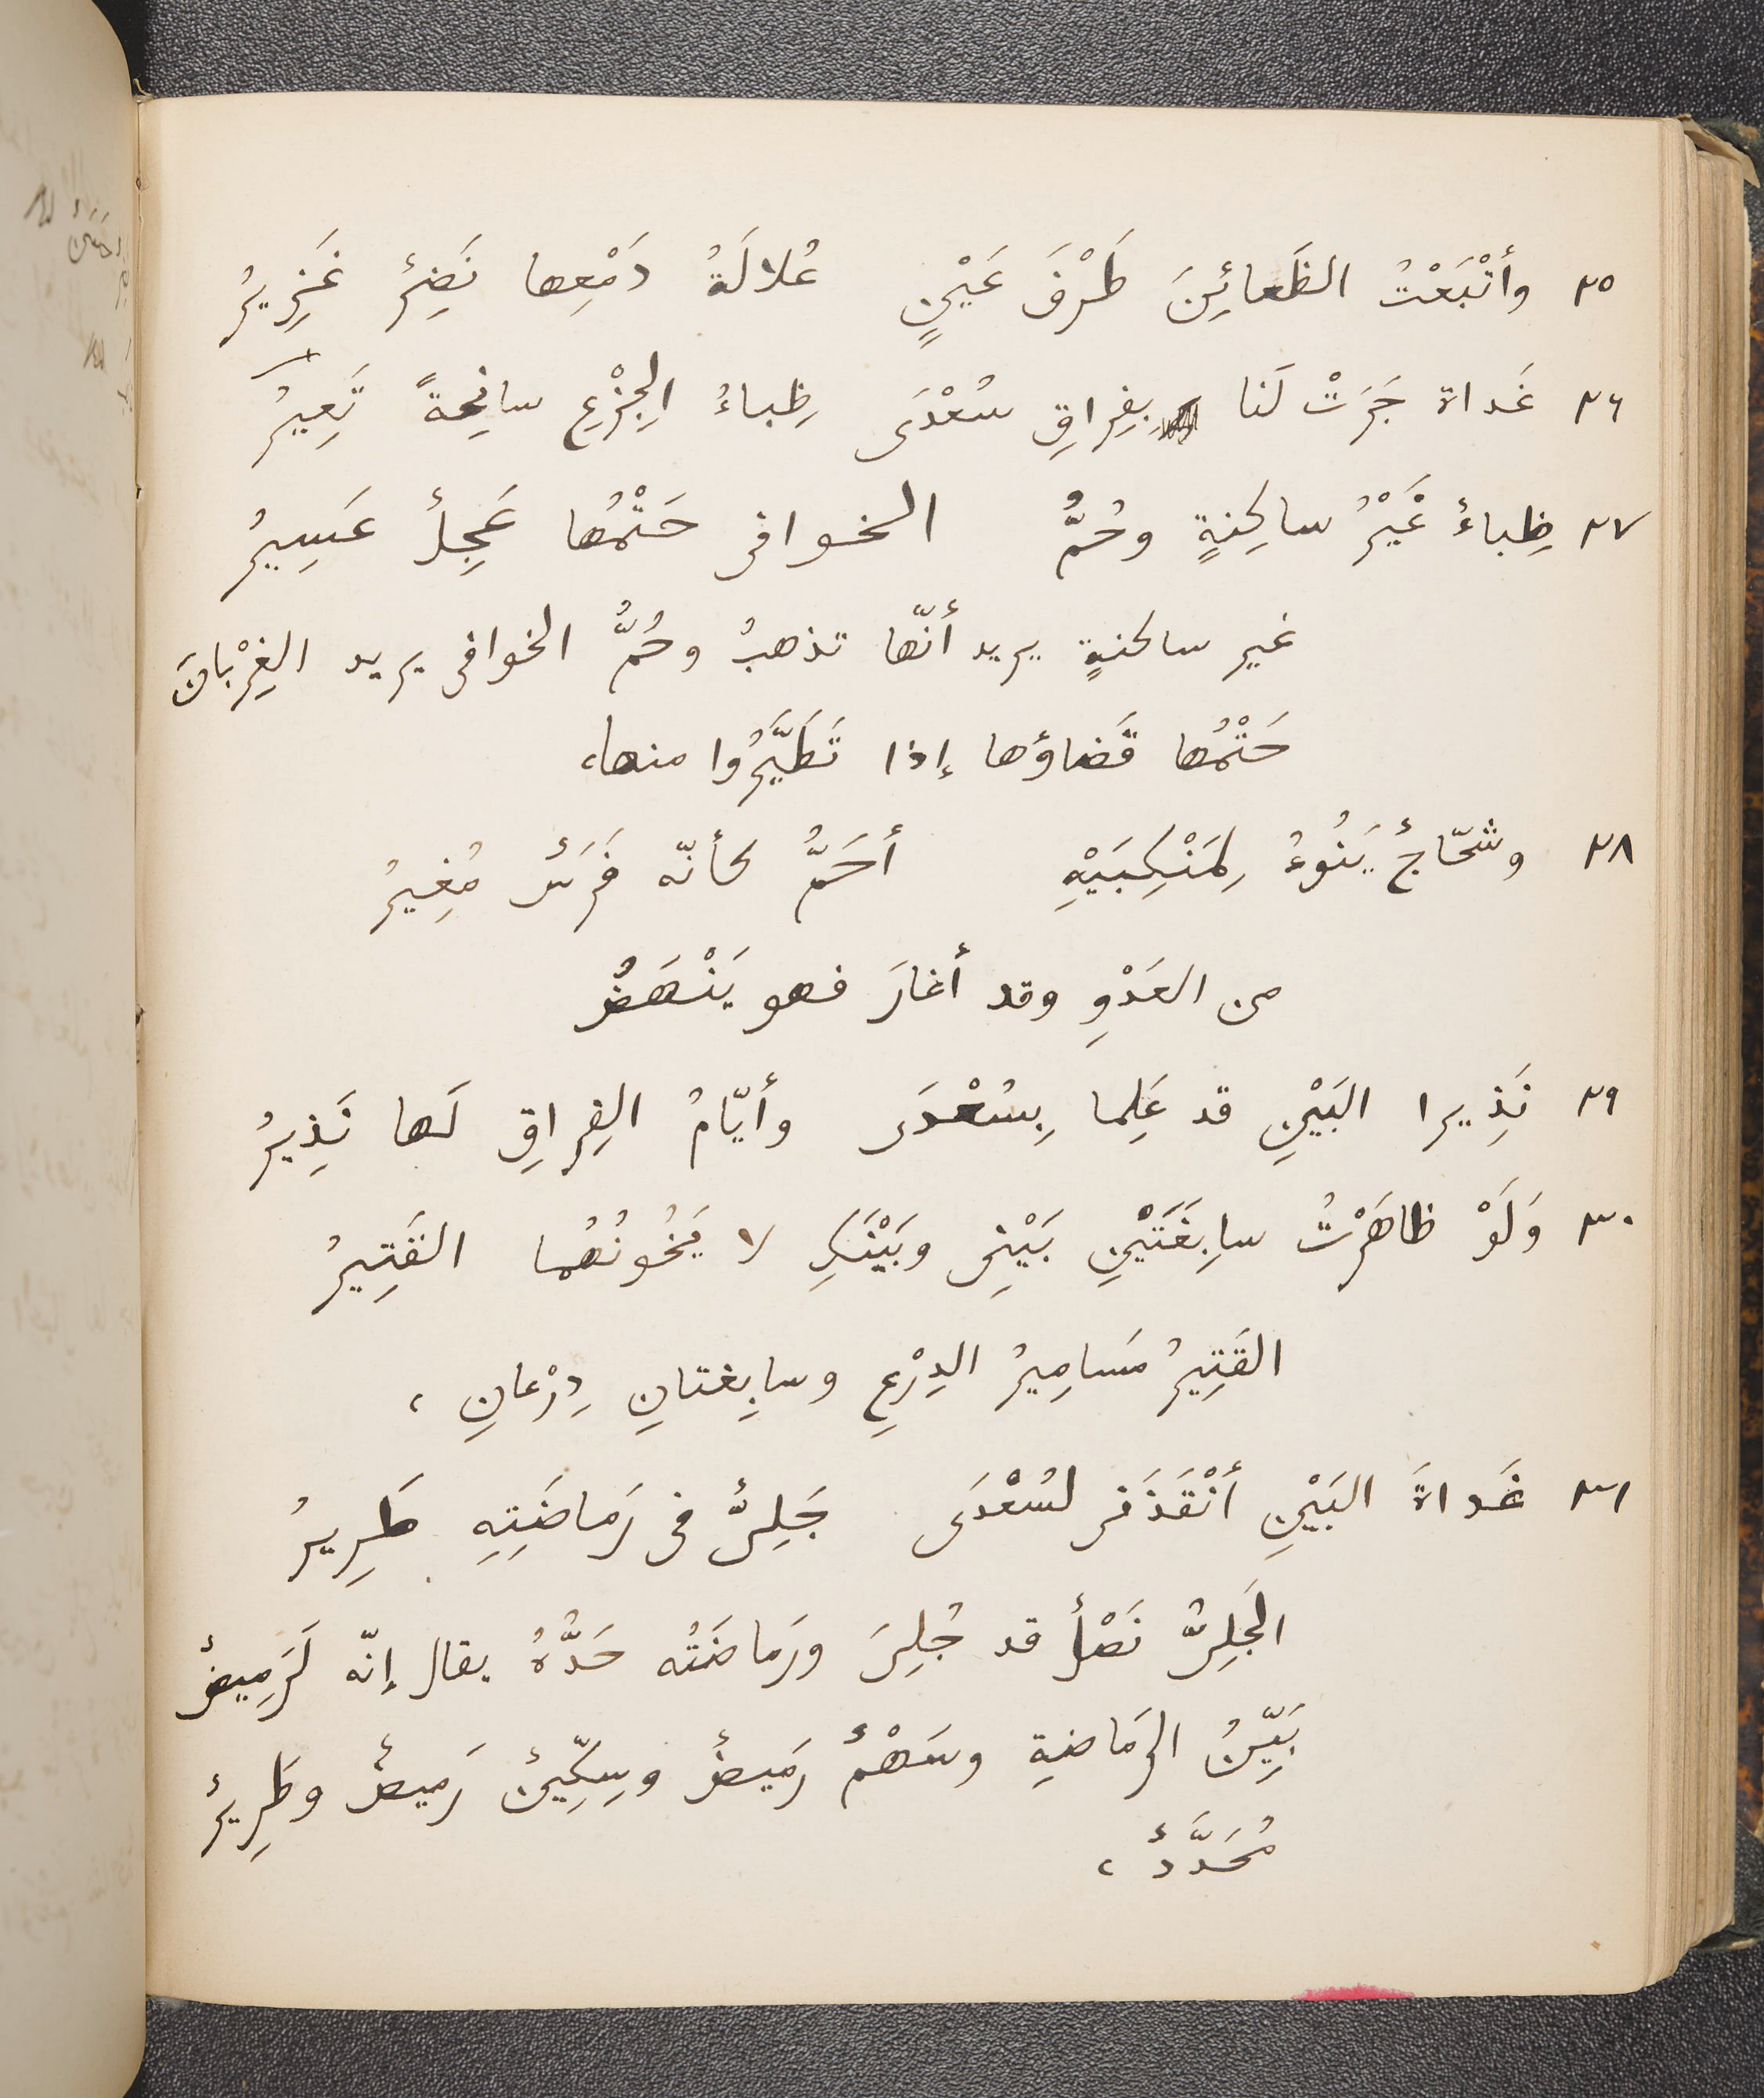 ٢٥ وأتْبَعْتُ الظَعائِنَ طَرْفَ عَيْنٍ عُلالَةُ دَمْعِها نَضِرٌ غَزِيرُ
٢٦ غَداة جَرَتْ لَنا بِفِراقِ سُعْدَى ظِباءُ الجِزْعِ سانِحةً تَعِيرُ
٢٧ ظِباءٌ غَيْرُ ساكِنةٍ وحُمُّ الخوافى حَتْمُها عَجِلٌ عَسِيرُ
غير ساكنةٍ يريد أنّها تذهبُ وحُمُّ الخوافى يريد الغِرْبانَ
حَتْمُها قَضاؤها إذا تَطَيَّرُوا منها،
٢٨ وشحّاجٌ يَنُوءُ لِمَنْكِبَيْهِ أحَمُّ كأنّه فَرَسٌ مُغِيرُ
من العَدْوِ وقد أغارَ فهو يَنْهَضُ
٢٩ نَذِيرا البَيْنِ قد عَلِما بِسُعْدَى وأيّامُ الفِراقِ لَها نَذِيرُ
٣٠ وَلَوْ ظاهَرْتُ سابِغَتَيْنِ بَيْنِى وبَيْنَكِ لا يَخُونُهُما القَتِيرُ
القَتِيرُ مَسامِيرُ الدِرْعِ وسابِغتانِ دِرْعانِ ،
٣١ غَداةَ البَيْنِ أنْقَذَنى لسُعْدَى جَلِىٌّ فى رَماضَتِهِ طَرِيرُ
الجَلِىُّ نَصْلٌ قد جُلِىَ ورَماضَتُه حَدُّهُ يقال إنّه لَرَمِيضٌ
بَيِّنُ الرَمَاضةِ وسَهْمٌ رَمِيضٌ وسِكِّينٌ رَمِيضٌ وطَرِيرٌ
مُحَدَّدٌ ،